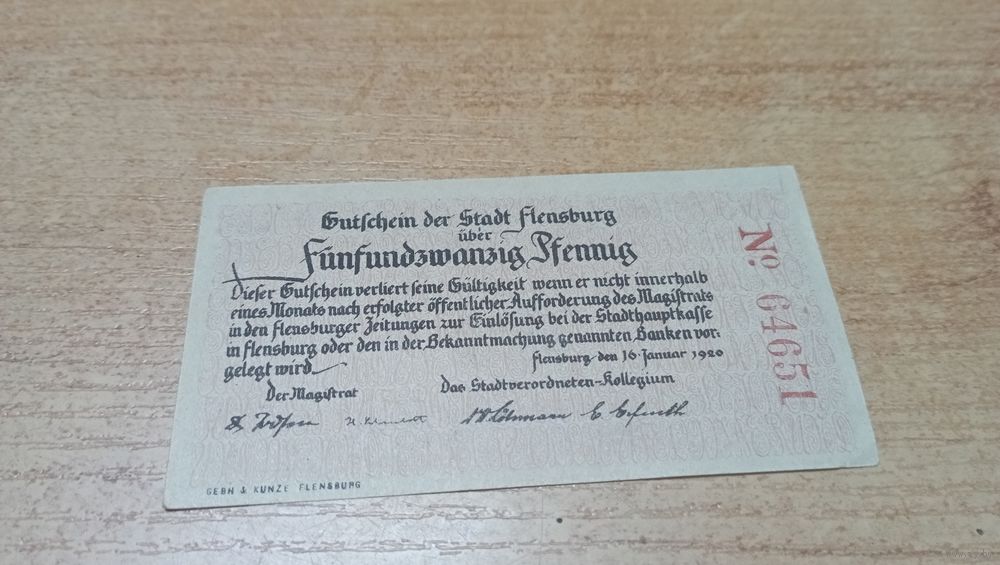 Gutschein der Stadt Flensburg
über
Fünfundzwanzig Pfennig
Dieser Gutschein verliert seine Gültigkeit wenn er nicht innerhalb
eines Monats nach erfolgter öffentlicher Aufforderung des Magistrats
in den Flensburger Zeitungen zur Einlösung bei der Stadthauptkasse
in Flensburg oder den in der Bekanntmachung genannten Banken vor:
gelegt wird.
Flensburg den 16. Januar 1920
Der Magistrat
Das Stadtverordneten-Kollegium
GEBH & KUNZE FLENSBURG
No. 64651